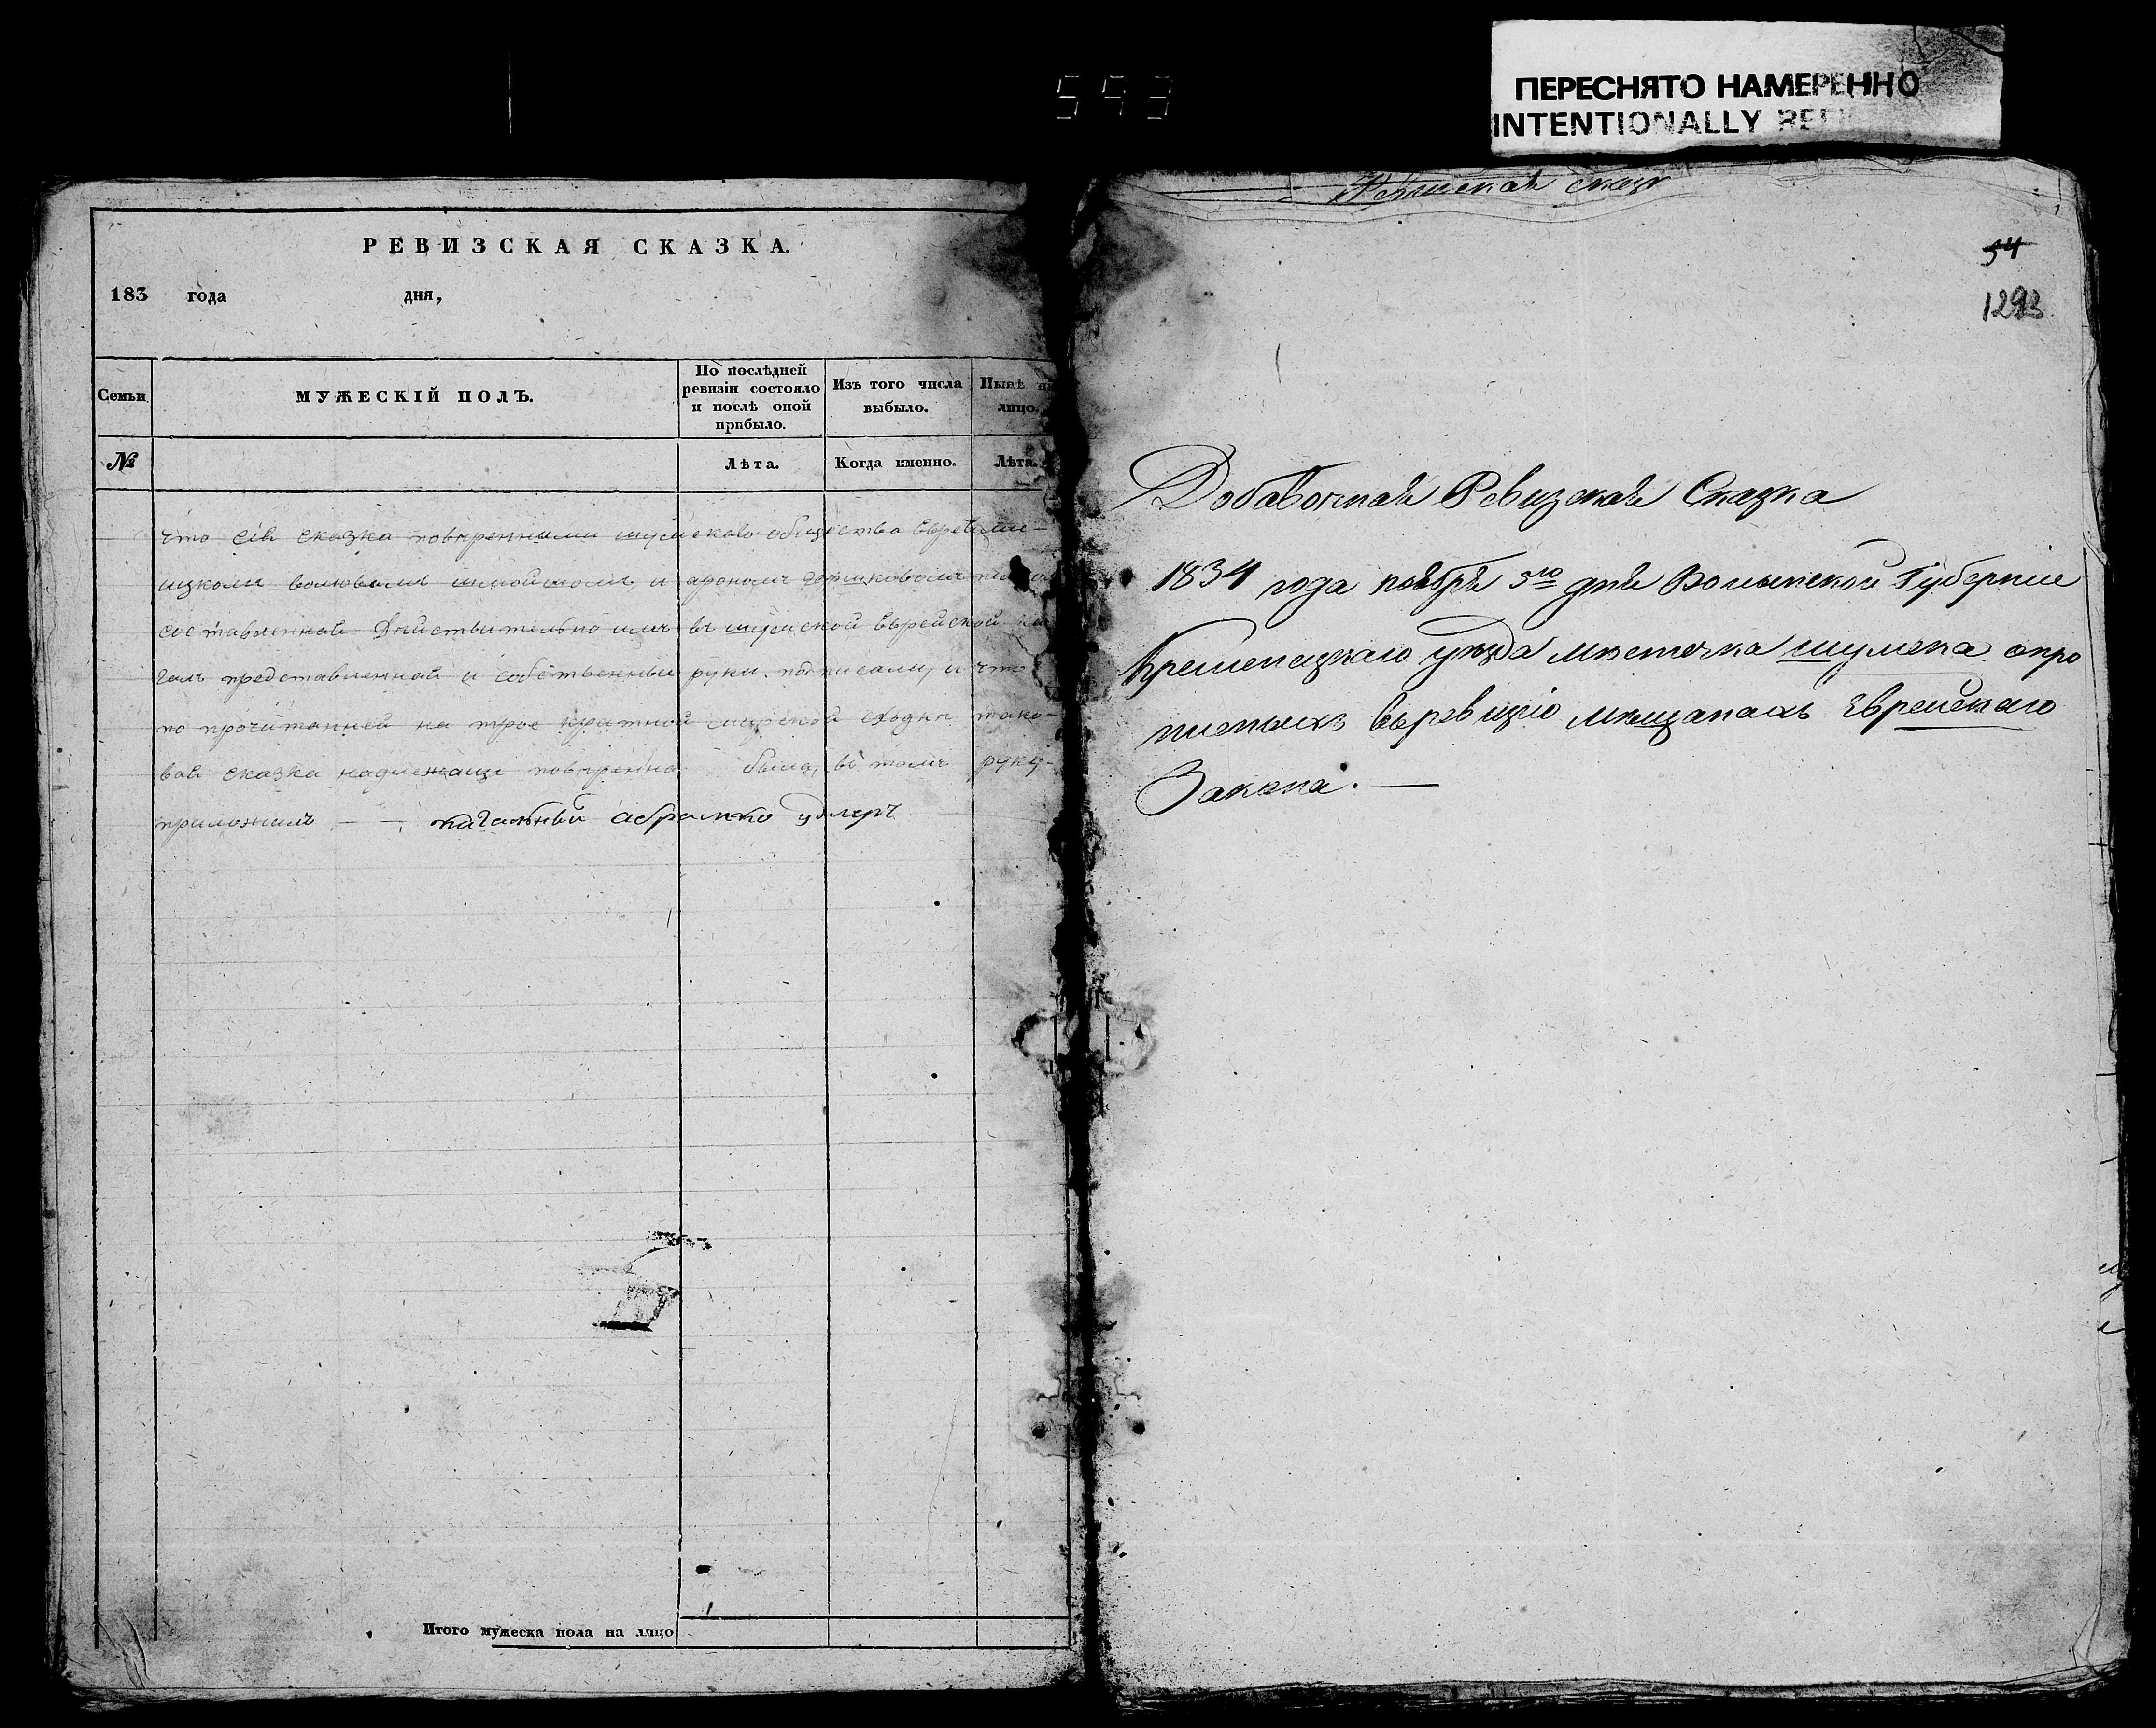 593
ПЕРЕСНЯТО НАМЕРЕННО
INTENTIONALLY
РЕВИЗСКАЯ СКАЗКА.
183 года дня,
Семьи.
МУЖЕСКІЙ ПОЛЪ.
По послѣдней ревизіи состояло и послѣ оной прибыло.
Изъ того числа выбыло.
Нынѣ на лицо.
№
Лѣта.
Когда именно.
Лѣта.
что сія сказка повѣренными шумскаго общества
и
составленная Дѣйствительно имъ въ шумской Еврейской
галъ представленной и собственные руки подписали, и что
по прочитанней на трое кратной сходки тако-
вая сказка надлежаще повѣренна была, въ томъ руку-
приложилъ — кагальный абрамко удлеръ
Итого мужеска пола на лицо
сказк
54
1293
Добавочная Ревизская Сказка
1834 года ноября 5го дня Волынской Губерніи
Кременецкаго уѣзда мѣстечка шумска опро
писныхъ въревизію мѣщанахъ Еврейскаго
Закона. —